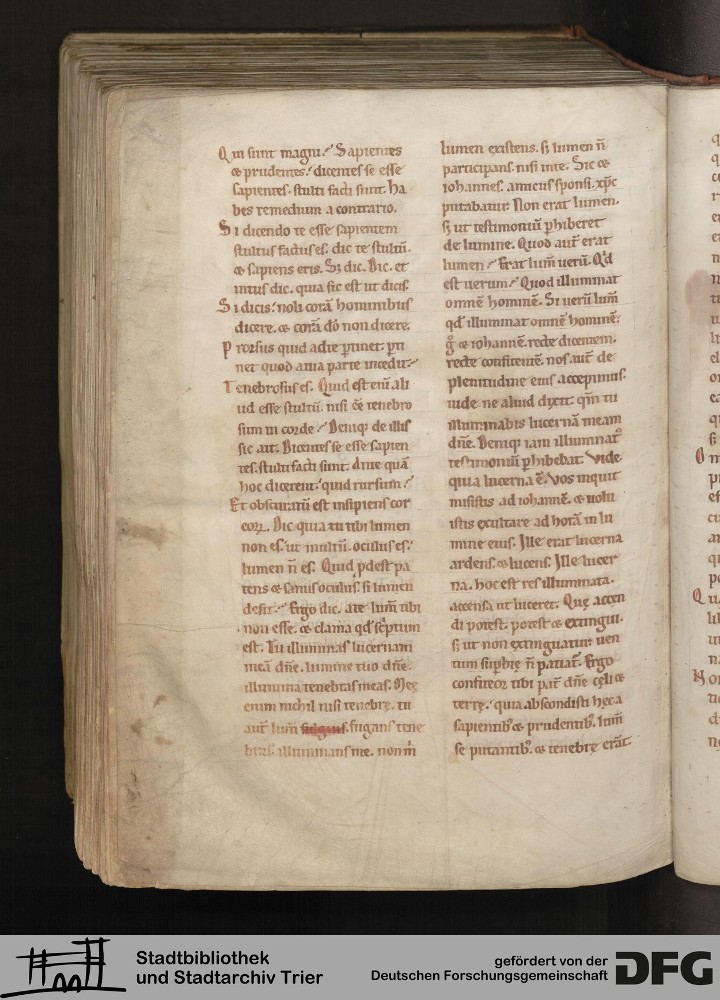 Qui sunt magni? Sapientes
& prudentes. dicentes se esse
sapientes. stulti facti sunt. ha
bes remedium a contrario.
Si dicendo te esse sapientem
stultus factus es. dic te stultū.
& sapiens eris. Sʒ dic. Dic. et
intus dic. quia sic est ut dicis.
Si dicis. noli corā hominibus
dicere. & corā dō non dicere.
Prorsus quid ad te ꝑtinet. ꝑti
net quod a tua parte
Tenebrosus es. Quid est eni ali
ud esse stultū. nisi ēe tenebro
sum in corde? Deniqꝫ de illis
sic ait. Dicentes se esse sapien
tes. stulti facti sunt. Ante quā
hoc dicerent. quid rursum?
Et obscuratū est insipiens cor
coꝝ. Dic quia tu tibi lumen
non es. ut multū. oculus es.
lumen n̄ es. Quid ꝓdest pa
tens & sanus oculus. si lumen
desit? Ergo dic. a te lum̄ tibi
non esse. & clama qd̄ scriptum
est. Tu illuminas lucernam
meā dn̄e. lumine tuo dn̄e.
illumina tenebras meas. Meę
enim nichil nisi tenebrę. tu
aut̄ lum̄ fugans tene
bras. illuminans me. non m̄
lumen existens. sʒ lumen n̄
participans. nisi in te. Sic &
iohannes. amicus sponsi. xp̄c
putabatur. Non erat lumen.
sʒ ut testimoniū ꝑhiberet
de lumine. Quod aut̄ erat
lumen? Erat lum̄ uerū. Qd̄
est uerum? Quod illuminat
omnē hominē. Si uerū lum̄
qd̄ illuminat omnē hominē.
gͦ & iohannē. recte dicentem.
recte confitentē. nos aut̄ de
plenitudine eius accepimus.
uide ne aliud dixit. qm̄ tu
illuminabis lucernā meam
dn̄e. Deniqꝫ iam illuminatꝰ
testimoniū ꝑhibebat. Vide
quia lucerna ē. Vos inquit
misistis ad iohannē. & uolu
istis exultare ad horā in lu
mine eius. Ille erat lucerna
ardens. & lucens. Ille lucer
na. hoc est res illuminata.
accensa ut luceret. Quę accen
di potest. potest & extingui.
sʒ ut non extinguatur. uen
tum suꝑbię n̄ patiat̄. Ergo
confiteor tibi pat̄ dn̄e cęli &
terrę. quia abscondisti hęc a
sapientibꝰ & prudentibꝰ. lum̄
se putantibꝰ. & tenebrę erāt.
Stadtbibliothek
und Stadtarchiv Trier
gefördert von der
Deutschen Forschungsgemeinschaft
DFG